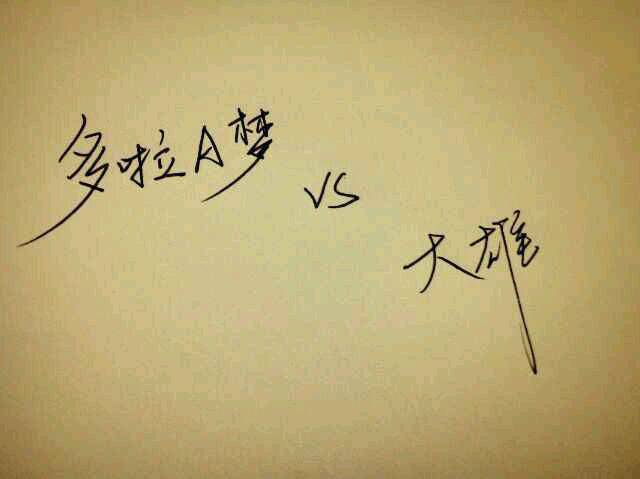 多啦A梦
VS
大雄